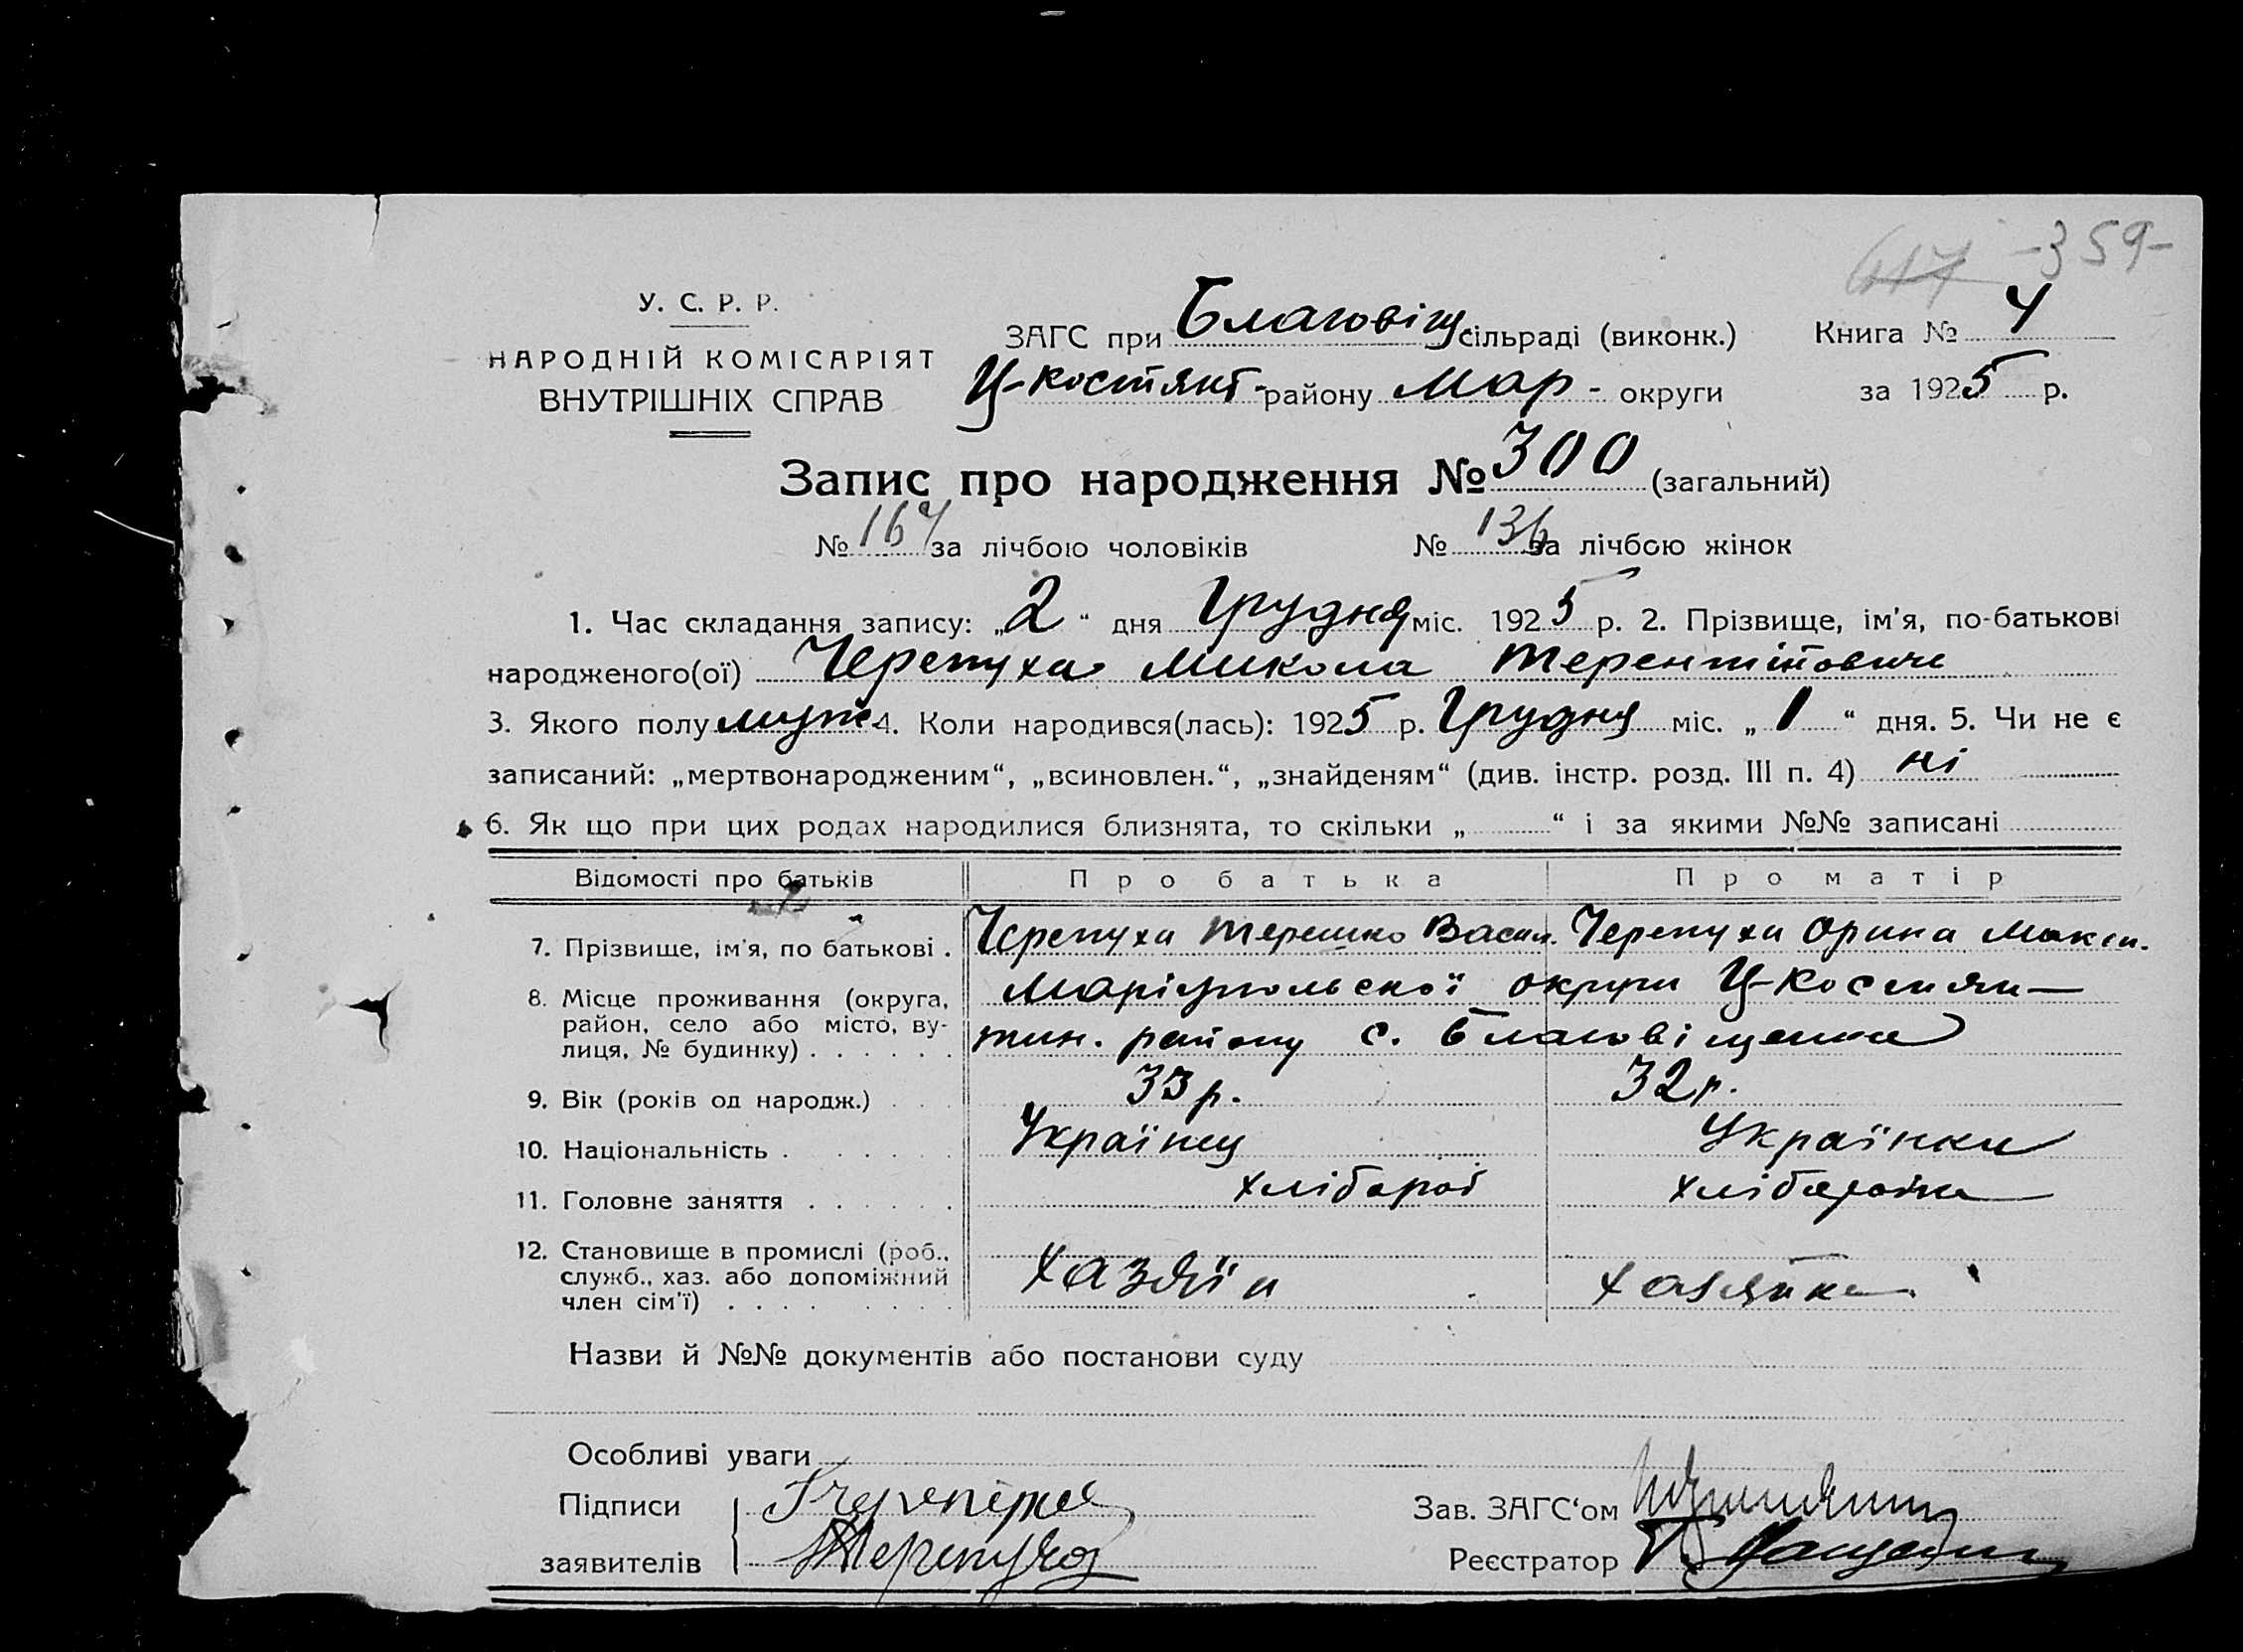 417 -359-
У. С. Р. Р.
НАРОДНІЙ КОМІСАРІЯТ
ВНУТРІШНІХ СПРАВ
ЗАГС при Благовіщ. сільраді (виконк.) Книга № 4
Ц-Костянт- району Мар- округи за 1925 р.
Запис про народження № 300 (загальний)
№ 164 за лічбою чоловіків № 136 за лічбою жінок
1. Час складання запису: „2“ дня Грудня міс. 1925 р. 2. Прізвище, ім'я, по-батькові
народженого(ої) Черепуха Микола Терентійович
3. Якого полу муж. 4. Коли народився(лась): 1925 р. Грудня міс. „1“ дня. 5. Чи не є
записаний: „мертвонародженим“, „всиновлен.“, „знайденям“ (див. інстр. розд. III п. 4) ні
6. Як що при цих родах народилися близнята, то скільки „ “ і за якими №№ записані
Відомості про батьків Про батька Про матір
7. Прізвище, ім'я, по батькові . Черепуха Терешко Васил. Черепуха Орина Макси.
8. Місце проживання (округа, Маріупольської округи Ц-Костян-
район, село або місто, ву- тин. району с. Благовіщенка
лиця, № будинку) . . . . . .
9. Вік (років од народж.) 33 р. 32 р.
10. Національність . Українец Українка
11. Головне заняття . . . . . . хлібороб хлiборобка
12. Становище в промислі (роб., 
служб., хаз. або допоміжний Хазяїн хазяйка
член сім'ї) . . . .
Назви й №№ документів або постанови суду
Особливі уваги
Підписи Зав. ЗАГС'ом
заявителів Черепуха Реєстратор